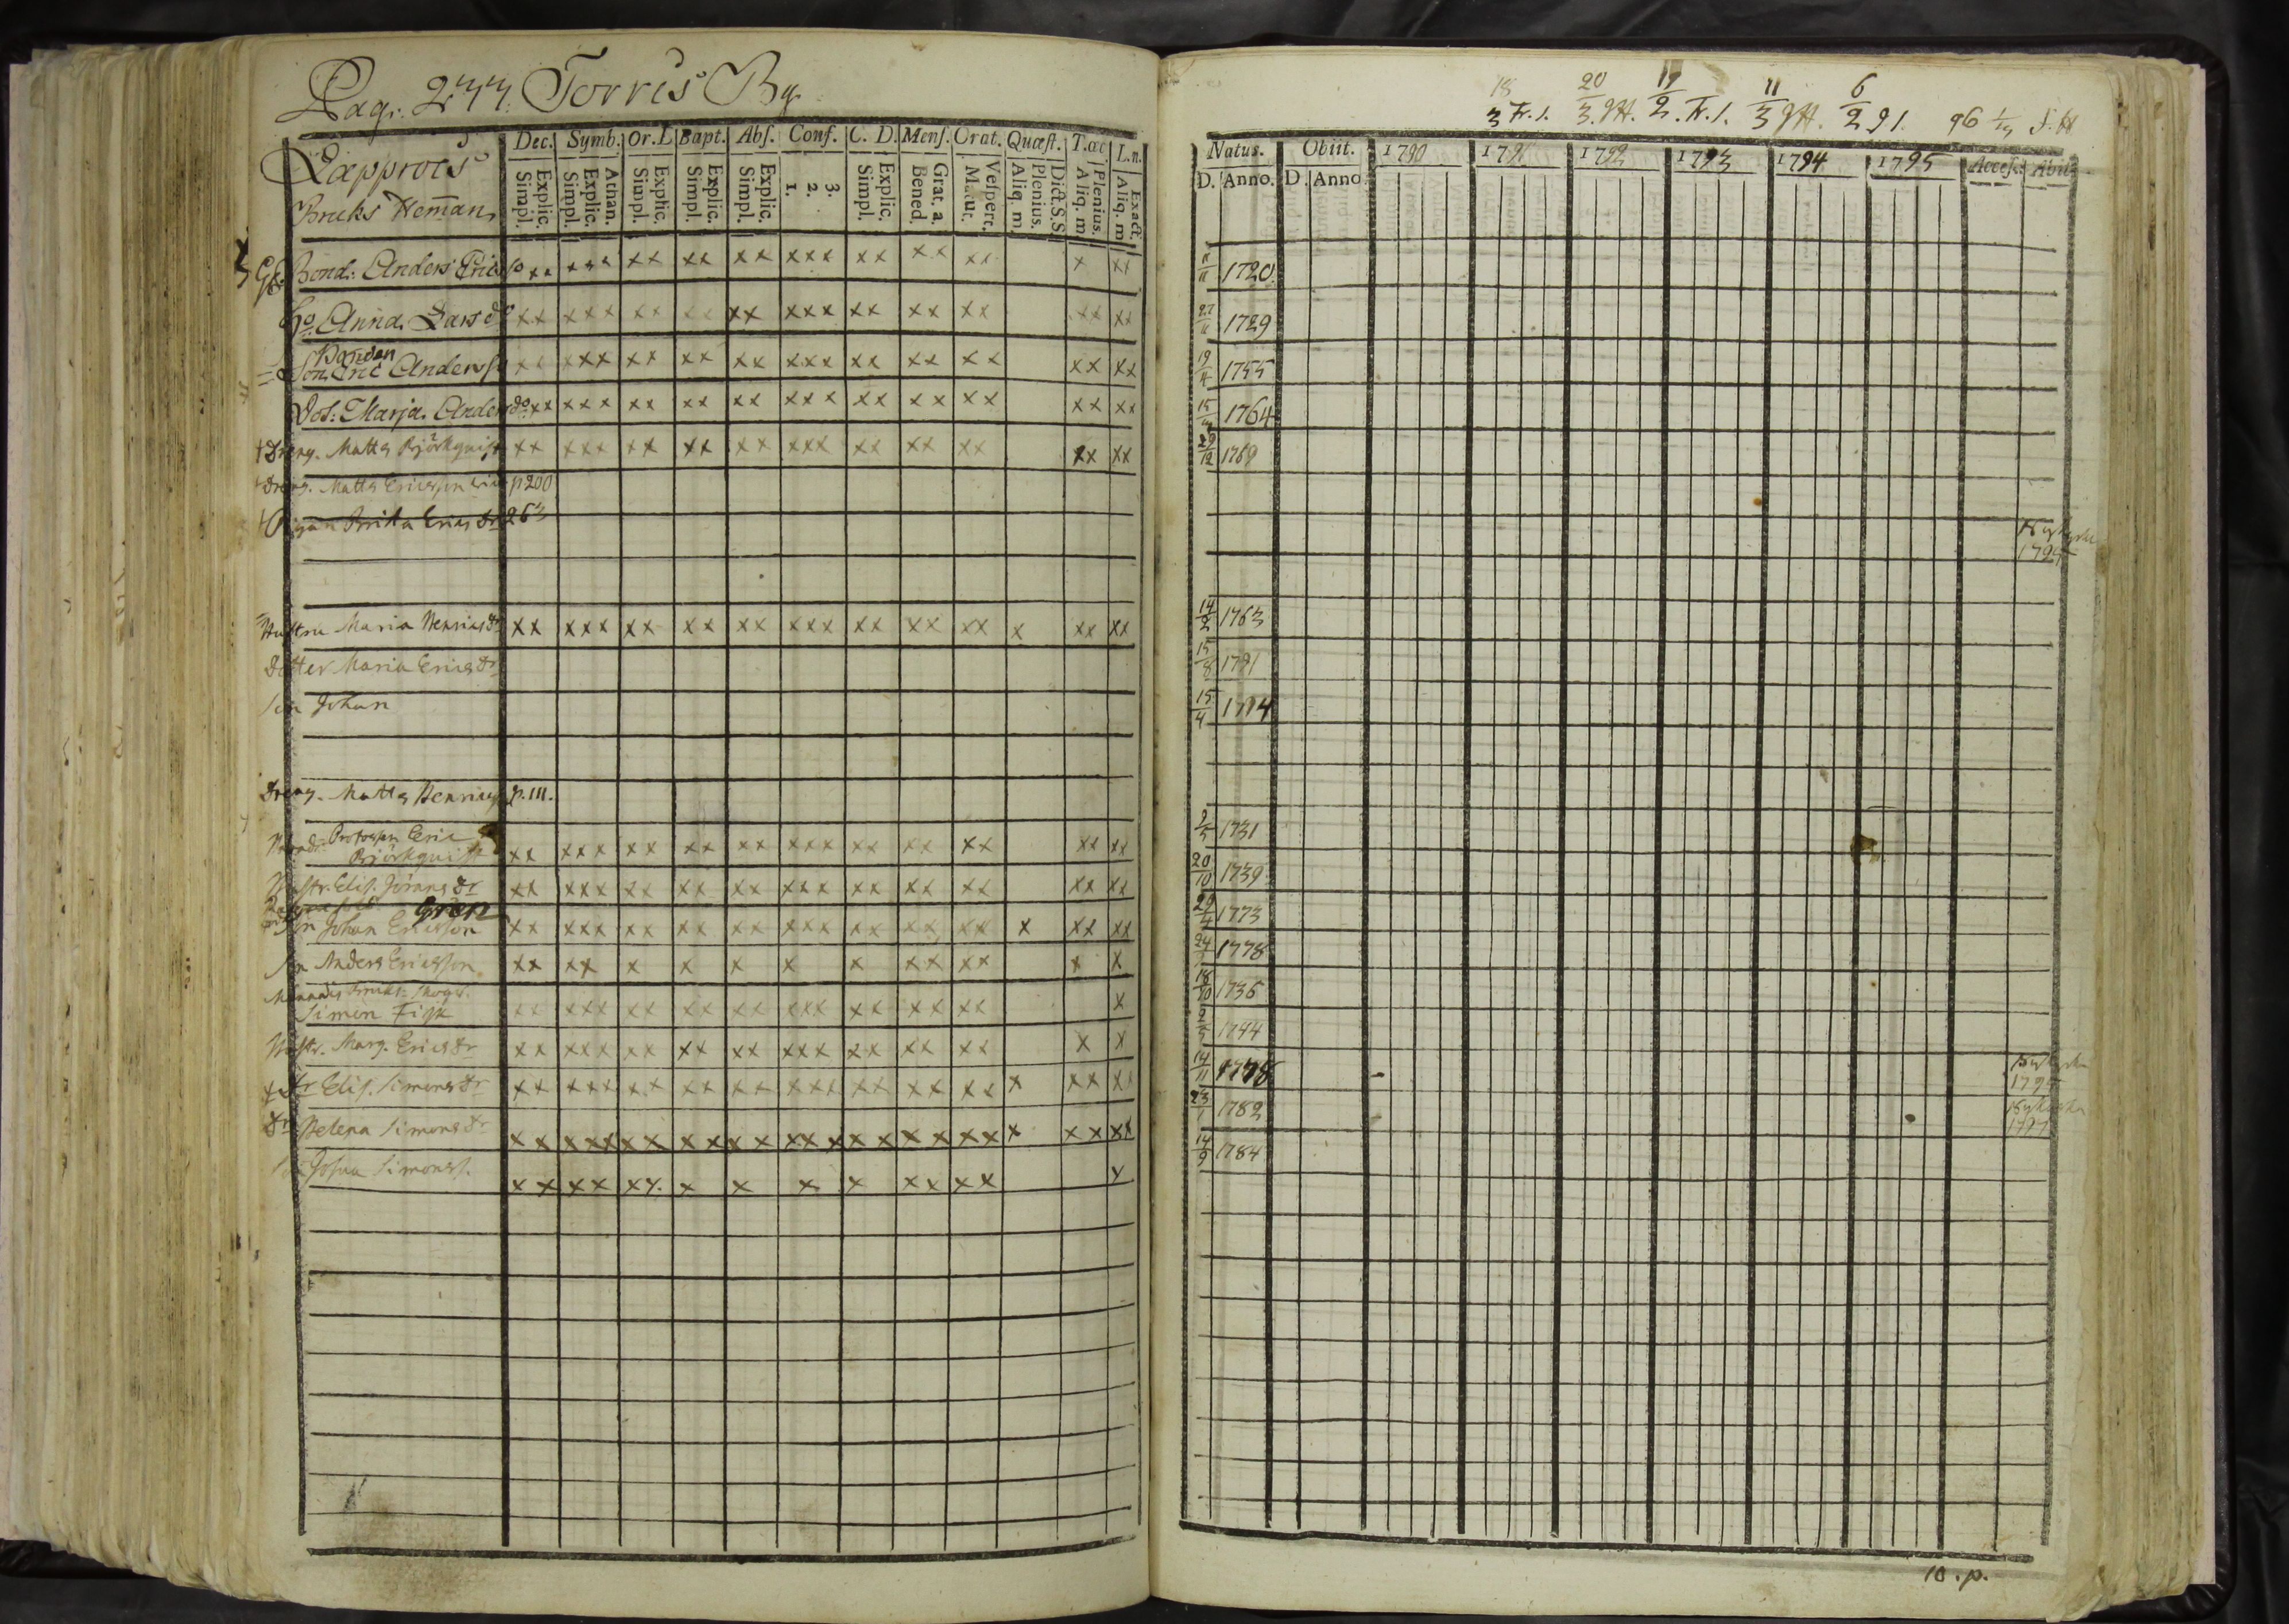 Pag. 277. Torris By.
Læpproes
Bruks Hem̄an
Dec. Symb. Or. L Bapt. Abſ. Conf. C. D. Menſ. Orat. Quæſt. T.œc L.n.
Explic. Simpl. Athan. Explic. Simpl. Explic. Simpl. Explic. Simpl. Explic. Simpl. 3. 2. 1. Explic. Simpl. Grat. a. Bened. Veſpert. Dict.S.S Plenius. Aliq. m Plenius. Aliq. m Exact. Aliq. m
Bond: Anders Erics so xx xxx xx xx xx xxx xx xx xx x xx
Ho. Anna Lars do xx xxx xx xx xx xxx xx xx xx xx xx
Bonden
Son Eric Anders so xx xxx xx xx xx xxx xx xx xx xx xx
Dot: Marja Anders do xx xxx xx xx xx xxx xx xx xx xx xx
+ Dreng. Matts Björkquist xx xxx xx xx xx xxx xx xx xx xx xx
Dreng. Matts Ericsson p 200
Pigan Brita Erics dr 263
Hustru Maria Henrics dr xx xxx xx xx xx xxx xx xx xx x xx xx
Dotter Maria Erics dr
son Johan
Dreng. Matts Henrics p. 111.
Eric
Björkquist xx xxx xx xx xx xxx xx xx xx xx xx
Hustr. Elis. Jörans dr xx xxx xx xx xx xxx xx xx xx xx xx
Grön
Son Johan Ericsson xx xxx xx xx xx xxx xx xx xx x xx xx
Son Anders Ericsson xx xx x x x x x xx xx x x
Simon Fisk xx xxx xx xx xx xxx xx xx xx x
Hustr. Marg. Erics dr xx xxx xx xx xx xxx xx xx xx x x
+ dr Elis. Simons dr xx xxx xx xx xx xxx xx xx xx x xx xx
dr Helena Simons dr xx xxx xx xx xx xxx xx xx xx x xx xx
Josua Simonss. xx xx xx x x x x xx xx x
18/3 Fr. 1. 20/3. 9H. 19/2. Fr. 1. 11/3 9H. 6/2 91. 96
Natus. Obiit. 1790 1791 1792 1793 1794 1795 Acceſ. Abit.
D. Anno. D. Anno
11/11 1720
27/11 1729
19/4 1755
15 1764
29/12 1769
Nykyrka
1795
14/2 1763
15/8 1791
15/4 1794
2/5 1731
20/10 1739
29/4 1773
24 1778
18/10 1736
2/5 1744
14/11 1778 Nykyrka
1795
23/1 1782 Nykyrka
1797
14/9 1784
10. p.